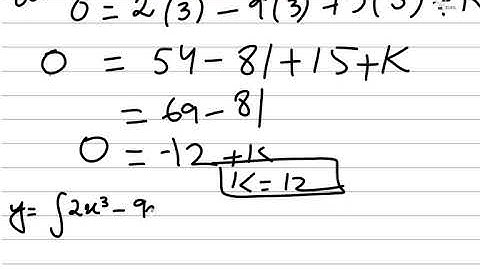 0 = 2(3) - 9(3) + 5(3) + K
0 = 54 - 81 + 15 + K
= 69 - 81
0 = -12 + K
K = 12
y = ∫2x³ - 9x